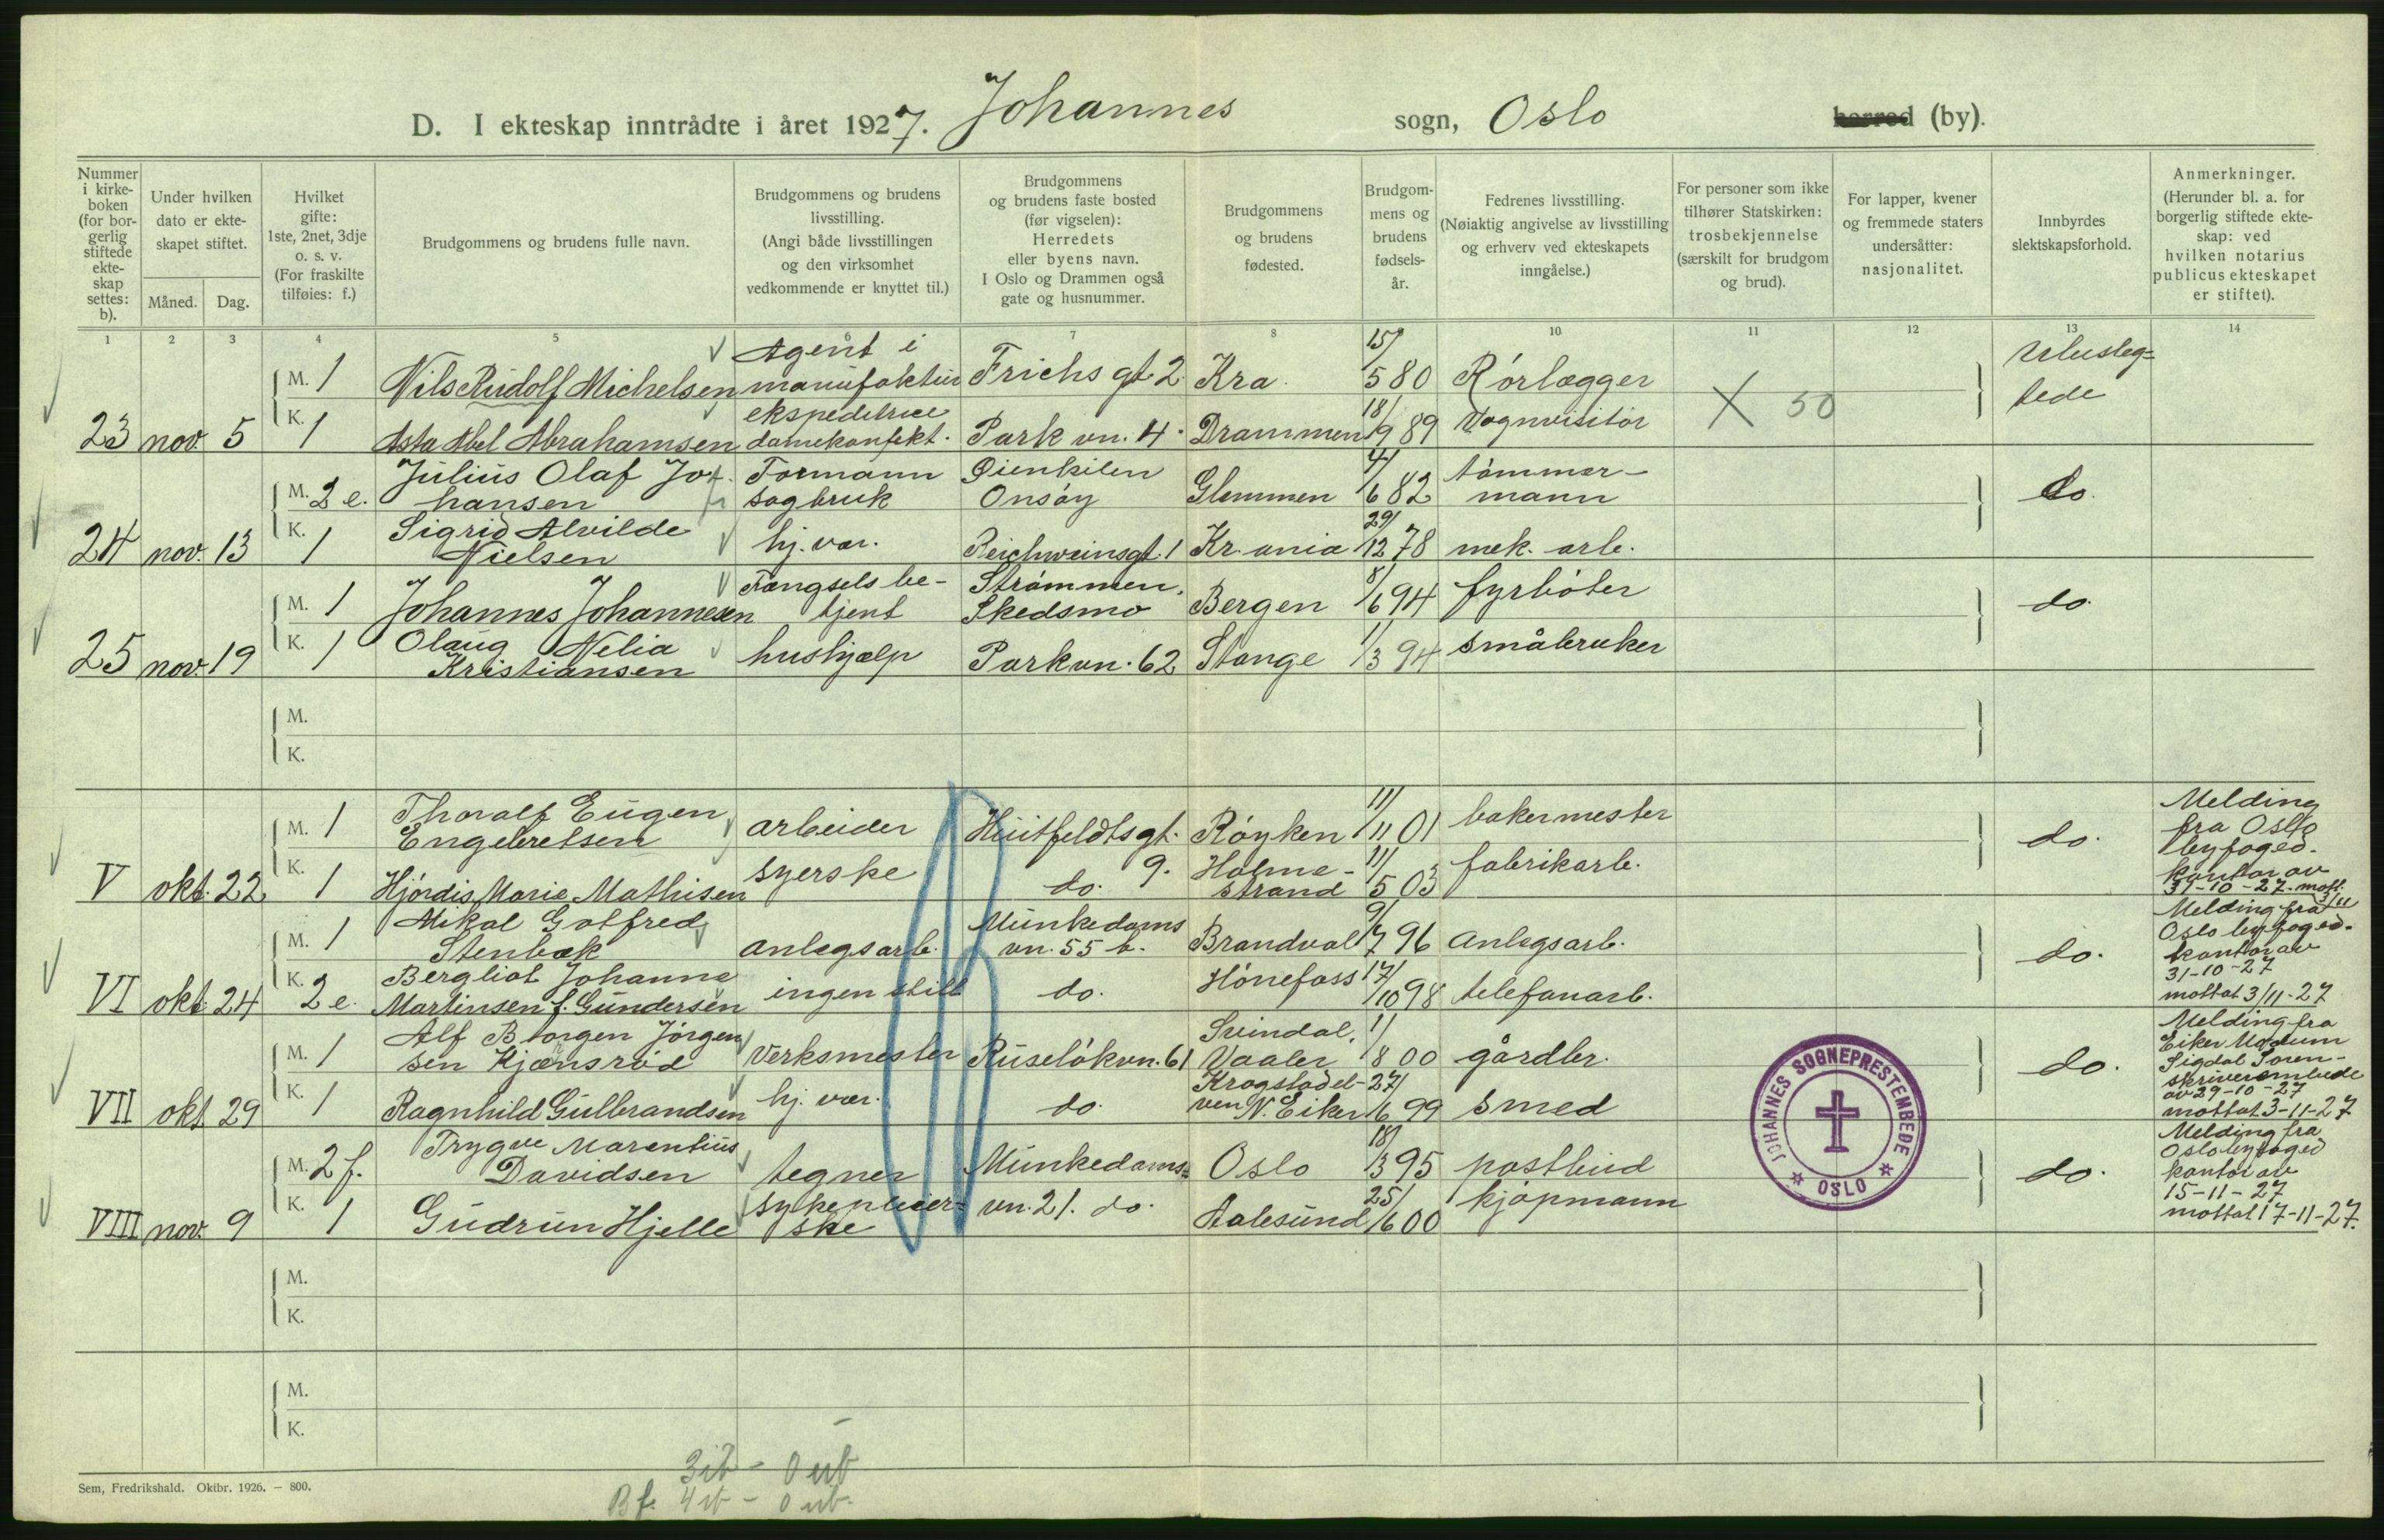 D. I ekteskap inntrådte i året 1927. Johannes sogn, Oslo herred (by).
Nummer i kirke- boken (for bor- gerlig stiftede ekte- skap settes: b).
Under hvilken dato er ekte- skapet stiftet.
Måned. Dag.
Hvilket gifte: 1ste, 2net, 3dje o. s. v. (For fraskilte tilføies: f.)
Brudgommens og brudens fulle navn.
Brudgommens og brudens livsstilling. (Angi både livsstillingen og den virksomhet vedkommende er knyttet til.)
Brudgommens og brudens faste bosted (før vigselen): Herredets eller byens navn. I Oslo og Drammen også gate og husnummer.
Brudgommens og brudens fødested.
Brudgom- mens og brudens fødsels- år.
Fedrenes livsstilling. (Nøiaktig angivelse av livsstilling og erhverv ved ekteskapets inngåelse.)
For personer som ikke tilhører Statskirken: trosbekjennelse (særskilt for brudgom og brud).
For lapper, kvener og fremmede staters undersåtter: nasjonalitet.
Innbyrdes slektskapsforhold.
Anmerkninger. (Herunder bl. a. for borgerlig stiftede ekte- skap: ved hvilken notarius publicus ekteskapet er stiftet).
1 2 3 4 5 6 7 8 10 11 12 13 14
M. 1 Nils Rudolf Michelsen Agent i manufaktur Frichs gt. 2 Kra. 15/5 80 Rörlægger Ubesleg= tede
23 nov. 5 K. 1 Asta Abel Abrahamsen ekspeditrice damekonfekt. Park vn. 4. Drammen 18/9 89 Vognvisitör X 50
M. 2 e. Julius Olaf Jo- hansen Formann sagbruk Öienkilen Onsöy Glemmen 4/6 82 tömmer- mann do.
24 nov. 13 K. 1 Sigrid Alvilde Nielsen hj. vær. Reichweinsgt. 1 Kr.ania 29/12 78 mek. arb.
M. 1 Johannes Johannesen Fængsels be- tjent Strömmen, Skedsmo Bergen 8/6 94 fyrböter do.
25 nov. 19 K. 1 Olaug Nelia Kristiansen hushjælp Parkvn. 62 Stange 1/3 94 småbruker
M.
K.
M. 1 Thoralf Eugen Engebretsen arbeider Huitfeldtsgt. 9. Röyken 11/11 01 bakermester do. Melding fra Oslo byfoged- kontor av 31-10-27. mott. 3/11
V okt. 22 K. 1 Hjördis Marie Mathisen syerske do. Holme- strand 11/5 03 fabrikarb.
M. 1 Mikal Gotfred Stenbæk anlegsarb. Munkedams vn. 55 b. Brandval 9/7 96 anlegsarb. do. Melding fra Oslo byfoged- kontor av 31-10-27 mottat 3/11-27
VI okt. 24 K. 2 e. Bergliot Johanne Martinsen f. Gundersen ingen still do. Hönefoss 17/10 98 telefonarb.
M. 1 Alf Borgen Jörgen sen Kjænsröd Verksmester Ruselökvn. 61 Svindal, Vaaler 1/8 00 gårdbr. do. Melding fra Eiker Modum Sigdal Soren- skriverembede av 29-10-27 mottat 3-11-27
VII okt. 29 K. 1 Ragnhild Gulbrandsen hj. vær. do. Krogstadel- ven N. Eiker 27/6 99 smed
M. 2 f. Trygve Marentius Davidsen tegner Munkedams= vn. 21. Oslo 18/3 95 postbud do. Melding fra Oslo byfoged kontor av 15-11-27 mottat 17-11-27.
VIII nov. 9 K. 1 Gudrun Hjelle sykepleier= ske do. Aalesund 25/6 00 kjöpmann
JOHANNES SOGNEPRESTEMBEDE OSLO
M.
K.
M.
K.
3 ib - 0 ub
Bf. 4 ib - 0 ub.
Sem, Fredrikshald. Oktbr. 1926. — 800.